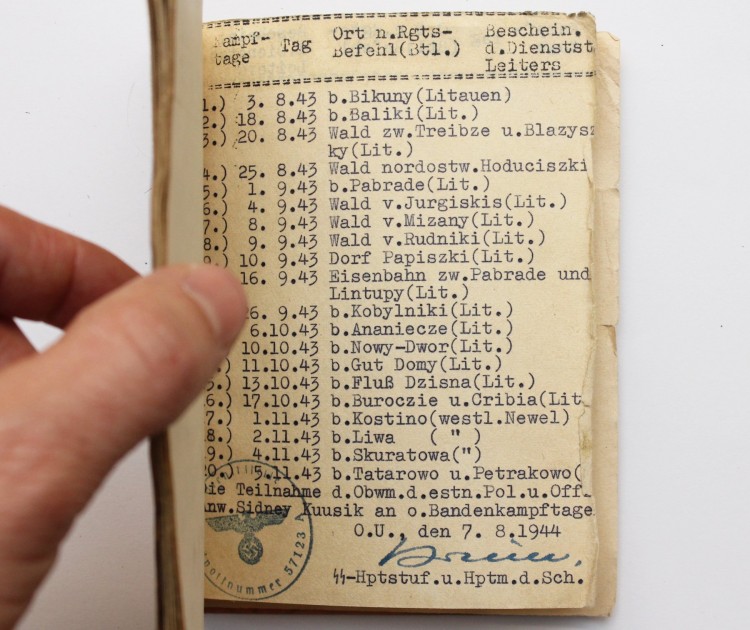 Kampf- Tag Ort n.Rgts- Beschein.
tage Befehl(Btl.) d.Dienstst
Leiters
1.) 3. 8.43 b.Bikuny(Litauen)
2.) 18. 8.43 b.Baliki(Lit.)
3.) 20. 8.43 Wald zw.Treibze u.Blazysz
ky(Lit.)
4.) 25. 8.43 Wald nordostw.Hoduciszki
5.) 1. 9.43 b.Pabrade(Lit.)
6.) 4. 9.43 Wald v.Jurgiskis(Lit.)
7.) 8. 9.43 Wald v.Mizany(Lit.)
8.) 9. 9.43 Wald v.Rudniki(Lit.)
9.) 10. 9.43 Dorf Papiszki(Lit.)
16. 9.43 Eisenbahn zw.Pabrade und
Lintupy(Lit.)
26. 9.43 b.Kobylniki(Lit.)
6.10.43 b.Ananiecze(Lit.)
10.10.43 b.Nowy-Dwor(Lit.)
.) 11.10.43 b.Gut Domy(Lit.)
5.) 13.10.43 b.Fluß Dzisna(Lit.)
6.) 17.10.43 b.Buroczie u.Cribia(Lit
7.) 1.11.43 b.Kostino(westl.Newel)
8.) 2.11.43 b.Liwa ( " )
9.) 4.11.43 b.Skuratowa(")
20.) 5.11.43 b.Tatarowo u.Petrakowo(
Die Teilnahme d.Obwm.d.estn.Pol.u.Off.
Anw.Sidney Kuusik an o.Bandenkampftage
O.U., den 7. 8.1944
SS-Hptstuf.u.Hptm.d.Sch.
57123